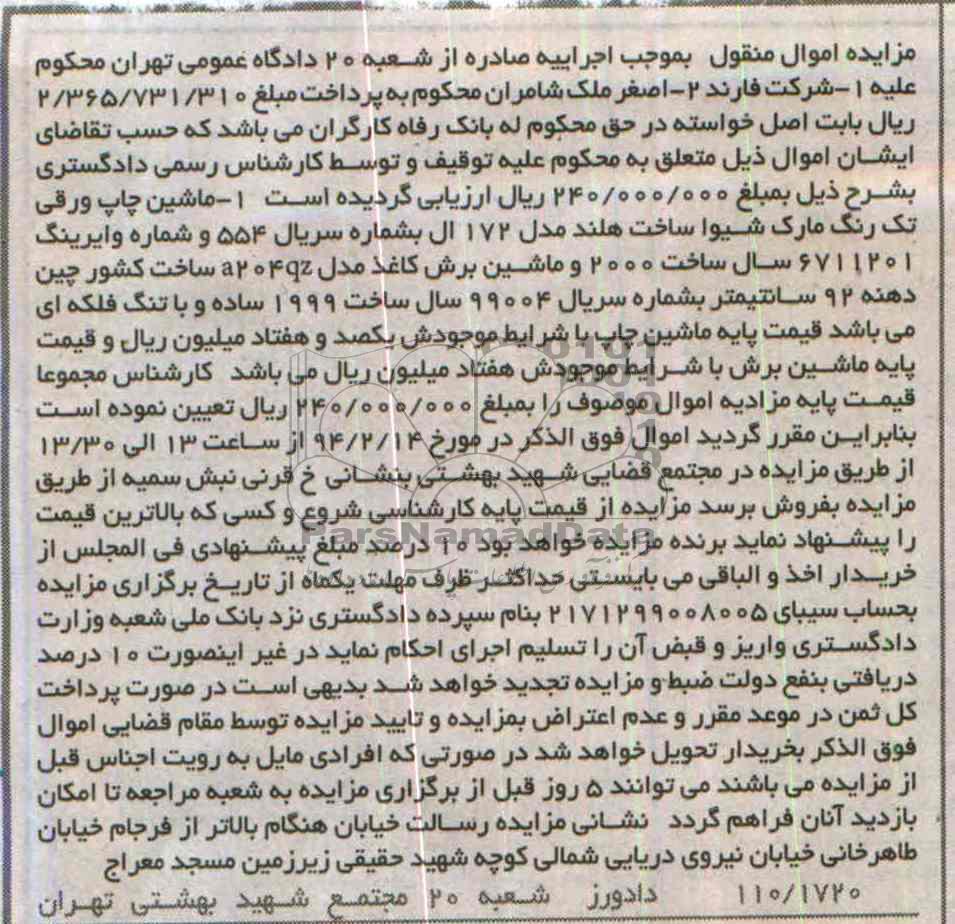 مزایده اموال منقول بموجب اجراییه صادره از شعبه ۲۰ دادگاه عمومی تهران محکوم
علیه ۱-شرکت فارند ۲-اصغر ملک شامران محکوم به پرداخت مبلغ ۲/۳۶۵/۷۳۱/۳۱۰
ریال بابت اصل خواسته در حق محکوم له بانک رفاه کارگران می باشد که حسب تقاضای
ایشان اموال ذیل متعلق به محکوم علیه توقیف و توسط کارشناس رسمی دادگستری
بشرح ذیل بمبلغ ۲۴۰/۰۰۰/۰۰۰ ریال ارزیابی گردیده است ۱-ماشین چاپ ورقی
تک رنگ مارک شیوا ساخت هلند مدل ۱۷۲ ال بشماره سریال ۵۵۴ و شماره وایرینگ
۶۷۱۱۲۰۱ سال ساخت ۲۰۰۰ و ماشین برش کاغذ مدل a۲۰۴qz ساخت کشور چین
دهنه ۹۲ سانتیمتر بشماره سریال ۹۹۰۰۴ سال ساخت ۱۹۹۹ ساده و با تنگ فلکه ای
می باشد قیمت پایه ماشین چاپ با شرایط موجودش یکصد و هفتاد میلیون ریال و قیمت
پایه ماشین برش با شرایط موجودش هفتاد میلیون ریال می باشد کارشناس مجموعا
قیمت پایه مزادیه اموال موصوف را بمبلغ ۲۴۰/۰۰۰/۰۰۰ ریال تعیین نموده است
بنابراین مقرر گردید اموال فوق الذکر در مورخ ۹۴/۲/۱۴ از ساعت ۱۳ الی ۱۳/۳۰
از طریق مزایده در مجتمع قضایی شهید بهشتی بنشانی خ قرنی نبش سمیه از طریق
مزایده بفروش برسد مزایده از قیمت پایه کارشناسی شروع و کسی که بالاترین قیمت
را پیشنهاد نماید برنده مزایده خواهد بود ۱۰ درصد مبلغ پیشنهادی فی المجلس از
خریدار اخذ و الباقی می بایستی حداکثر ظرف مهلت یکماه از تاریخ برگزاری مزایده
بحساب سیبای ۲۱۷۱۲۹۹۰۰۸۰۰۵ بنام سپرده دادگستری نزد بانک ملی شعبه وزارت
دادگستری واریز و قبض آن را تسلیم اجرای احکام نماید در غیر اینصورت ۱۰ درصد
دریافتی بنفع دولت ضبط و مزایده تجدید خواهد شد بدیهی است در صورت پرداخت
کل ثمن در موعد مقرر و عدم اعتراض بمزایده و تایید مزایده توسط مقام قضایی اموال
فوق الذکر بخریدار تحویل خواهد شد در صورتی که افرادی مایل به رویت اجناس قبل
از مزایده می باشند می توانند ۵ روز قبل از برگزاری مزایده به شعبه مراجعه تا امکان
بازدید آنان فراهم گردد نشانی مزایده رسالت خیابان هنگام بالاتر از فرجام خیابان
طاهرخانی خیابان نیروی دریایی شمالی کوچه شهید حقیقی زیرزمین مسجد معراج
۱۱۰/۱۷۲۰ دادورز شعبه ۲۰ مجتمع شهید بهشتی تهران
ParsNamadData